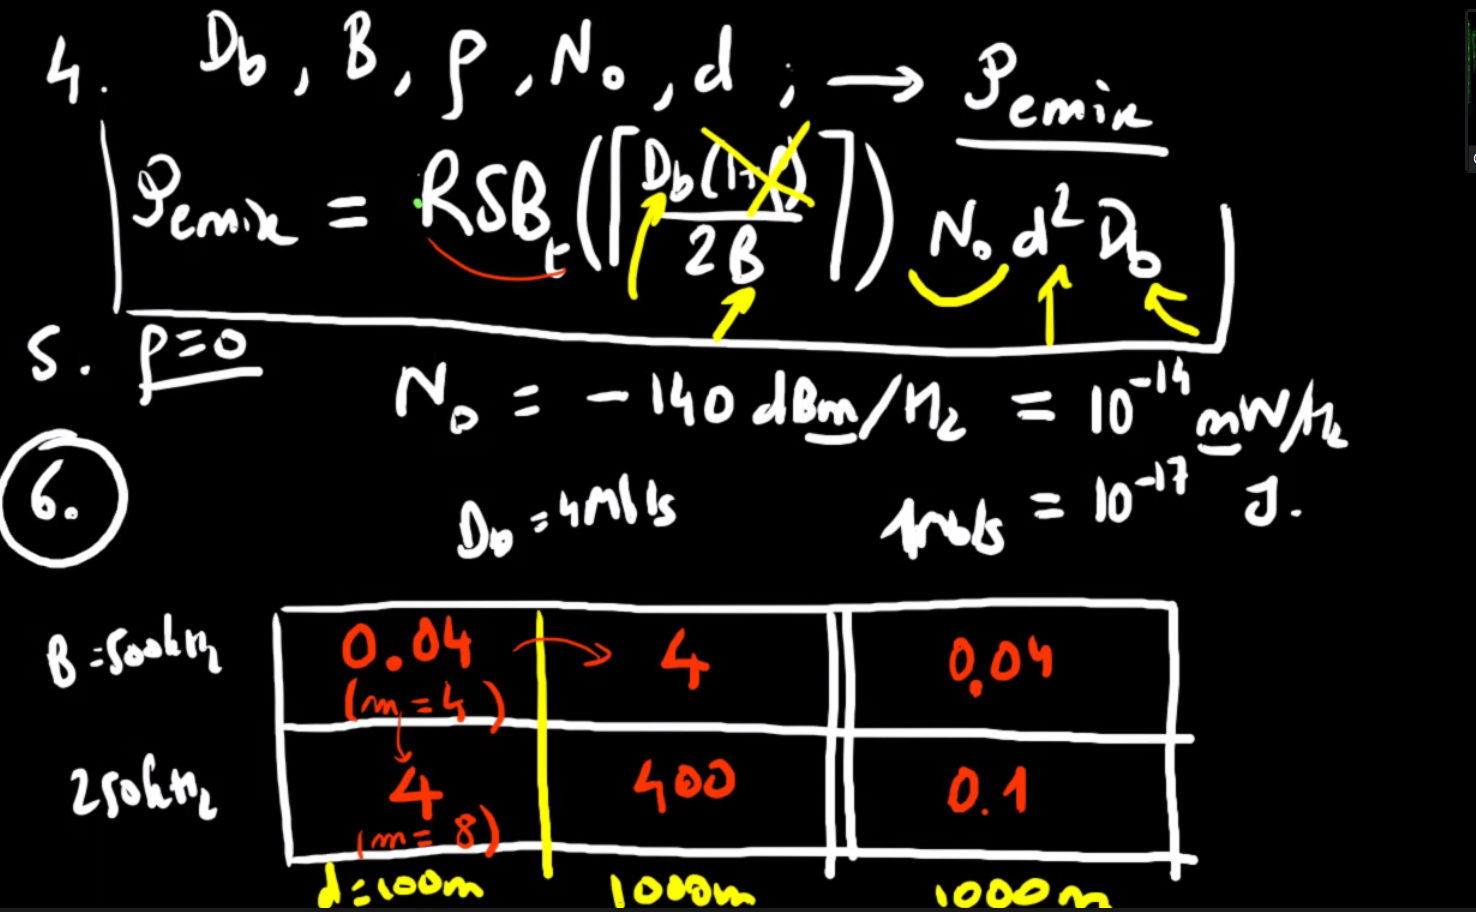 4. Db, B, ρ, N₀, d ; → Pemix
Pemix = RSBt(⌈Db(1+ρ)/2B⌉) N₀ d² Db
5. ρ=0
N₀ = -140 dBm/Hz = 10⁻¹⁴ mW/Hz
6.
Db = 4Mb/s
= 10⁻¹⁷ J.
B = 500kHz 0.04 → 4 0.04
(m = 4)
250kHz 4 400 0.1
(m = 8)
d=100m 1000m 1000m